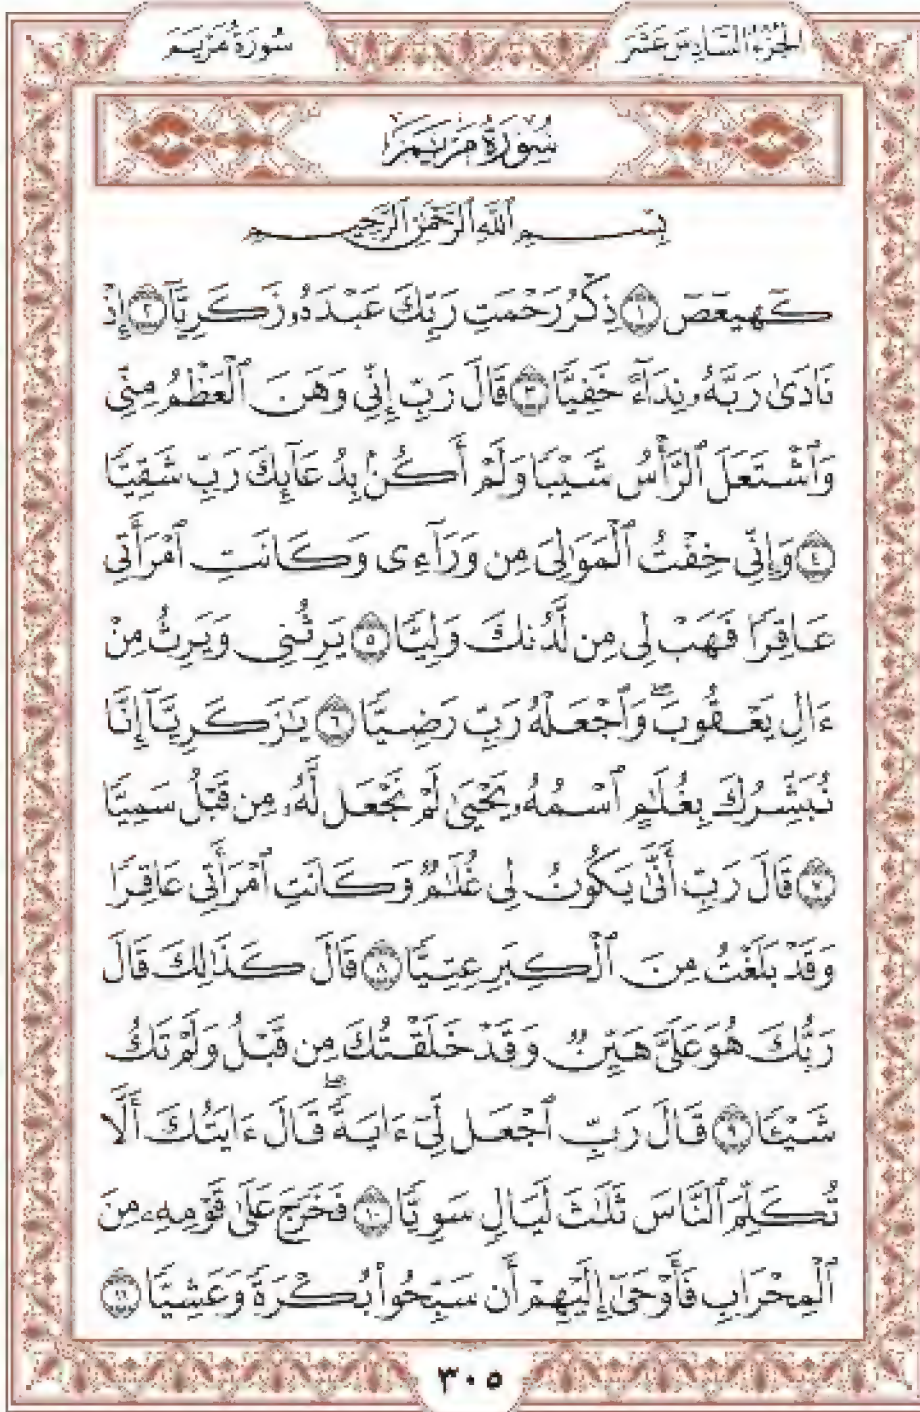 الجزء السادس عشر
سورة مريم
سورة مريم
بِسْمِ ٱللَّهِ ٱلرَّحْمَٰنِ ٱلرَّحِيمِ
كٓهيعٓصٓ ١ ذِكْرُ رَحْمَتِ رَبِّكَ عَبْدَهُۥ زَكَرِيَّآ ٢ إِذْ
نَادَىٰ رَبَّهُۥ نِدَآءً خَفِيًّا ٣ قَالَ رَبِّ إِنِّى وَهَنَ ٱلْعَظْمُ مِنِّى
وَٱشْتَعَلَ ٱلرَّأْسُ شَيْبًا وَلَمْ أَكُنۢ بِدُعَآئِكَ رَبِّ شَقِيًّا
٤ وَإِنِّى خِفْتُ ٱلْمَوَٰلِىَ مِن وَرَآءِى وَكَانَتِ ٱمْرَأَتِى
عَاقِرًا فَهَبْ لِى مِن لَّدُنكَ وَلِيًّا ٥ يَرِثُنِى وَيَرِثُ مِنْ
ءَالِ يَعْقُوبَ ۖ وَٱجْعَلْهُ رَبِّ رَضِيًّا ٦ يَٰزَكَرِيَّآ إِنَّا
نُبَشِّرُكَ بِغُلَٰمٍ ٱسْمُهُۥ يَحْيَىٰ لَمْ نَجْعَل لَّهُۥ مِن قَبْلُ سَمِيًّا
٧ قَالَ رَبِّ أَنَّىٰ يَكُونُ لِى غُلَٰمٌ وَكَانَتِ ٱمْرَأَتِى عَاقِرًا
وَقَدْ بَلَغْتُ مِنَ ٱلْكِبَرِ عِتِيًّا ٨ قَالَ كَذَٰلِكَ قَالَ
رَبُّكَ هُوَ عَلَىَّ هَيِّنٌ وَقَدْ خَلَقْتُكَ مِن قَبْلُ وَلَمْ تَكُ
شَيْـًٔا ٩ قَالَ رَبِّ ٱجْعَل لِّىٓ ءَايَةً ۚ قَالَ ءَايَتُكَ أَلَّا
تُكَلِّمَ ٱلنَّاسَ ثَلَٰثَ لَيَالٍ سَوِيًّا ١٠ فَخَرَجَ عَلَىٰ قَوْمِهِۦ مِنَ
ٱلْمِحْرَابِ فَأَوْحَىٰٓ إِلَيْهِمْ أَن سَبِّحُوا۟ بُكْرَةً وَعَشِيًّا ١١
٣٠٥